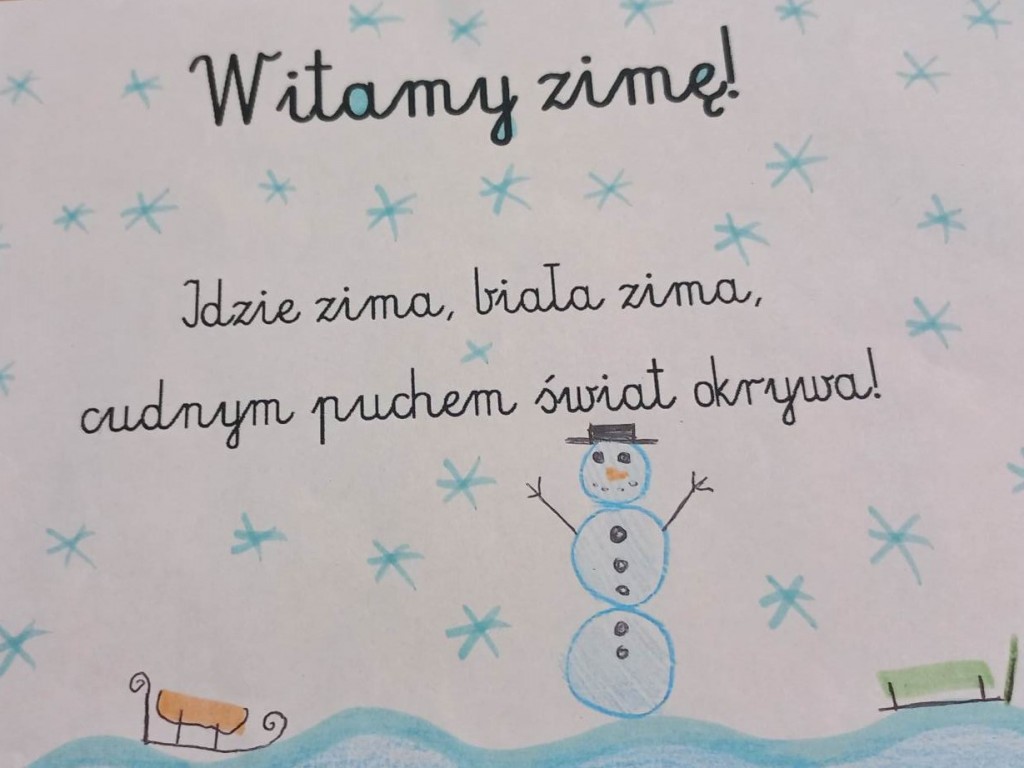 Witamy zimę!
Idzie zima, biała zima,
cudnym puchem świat okrywa!